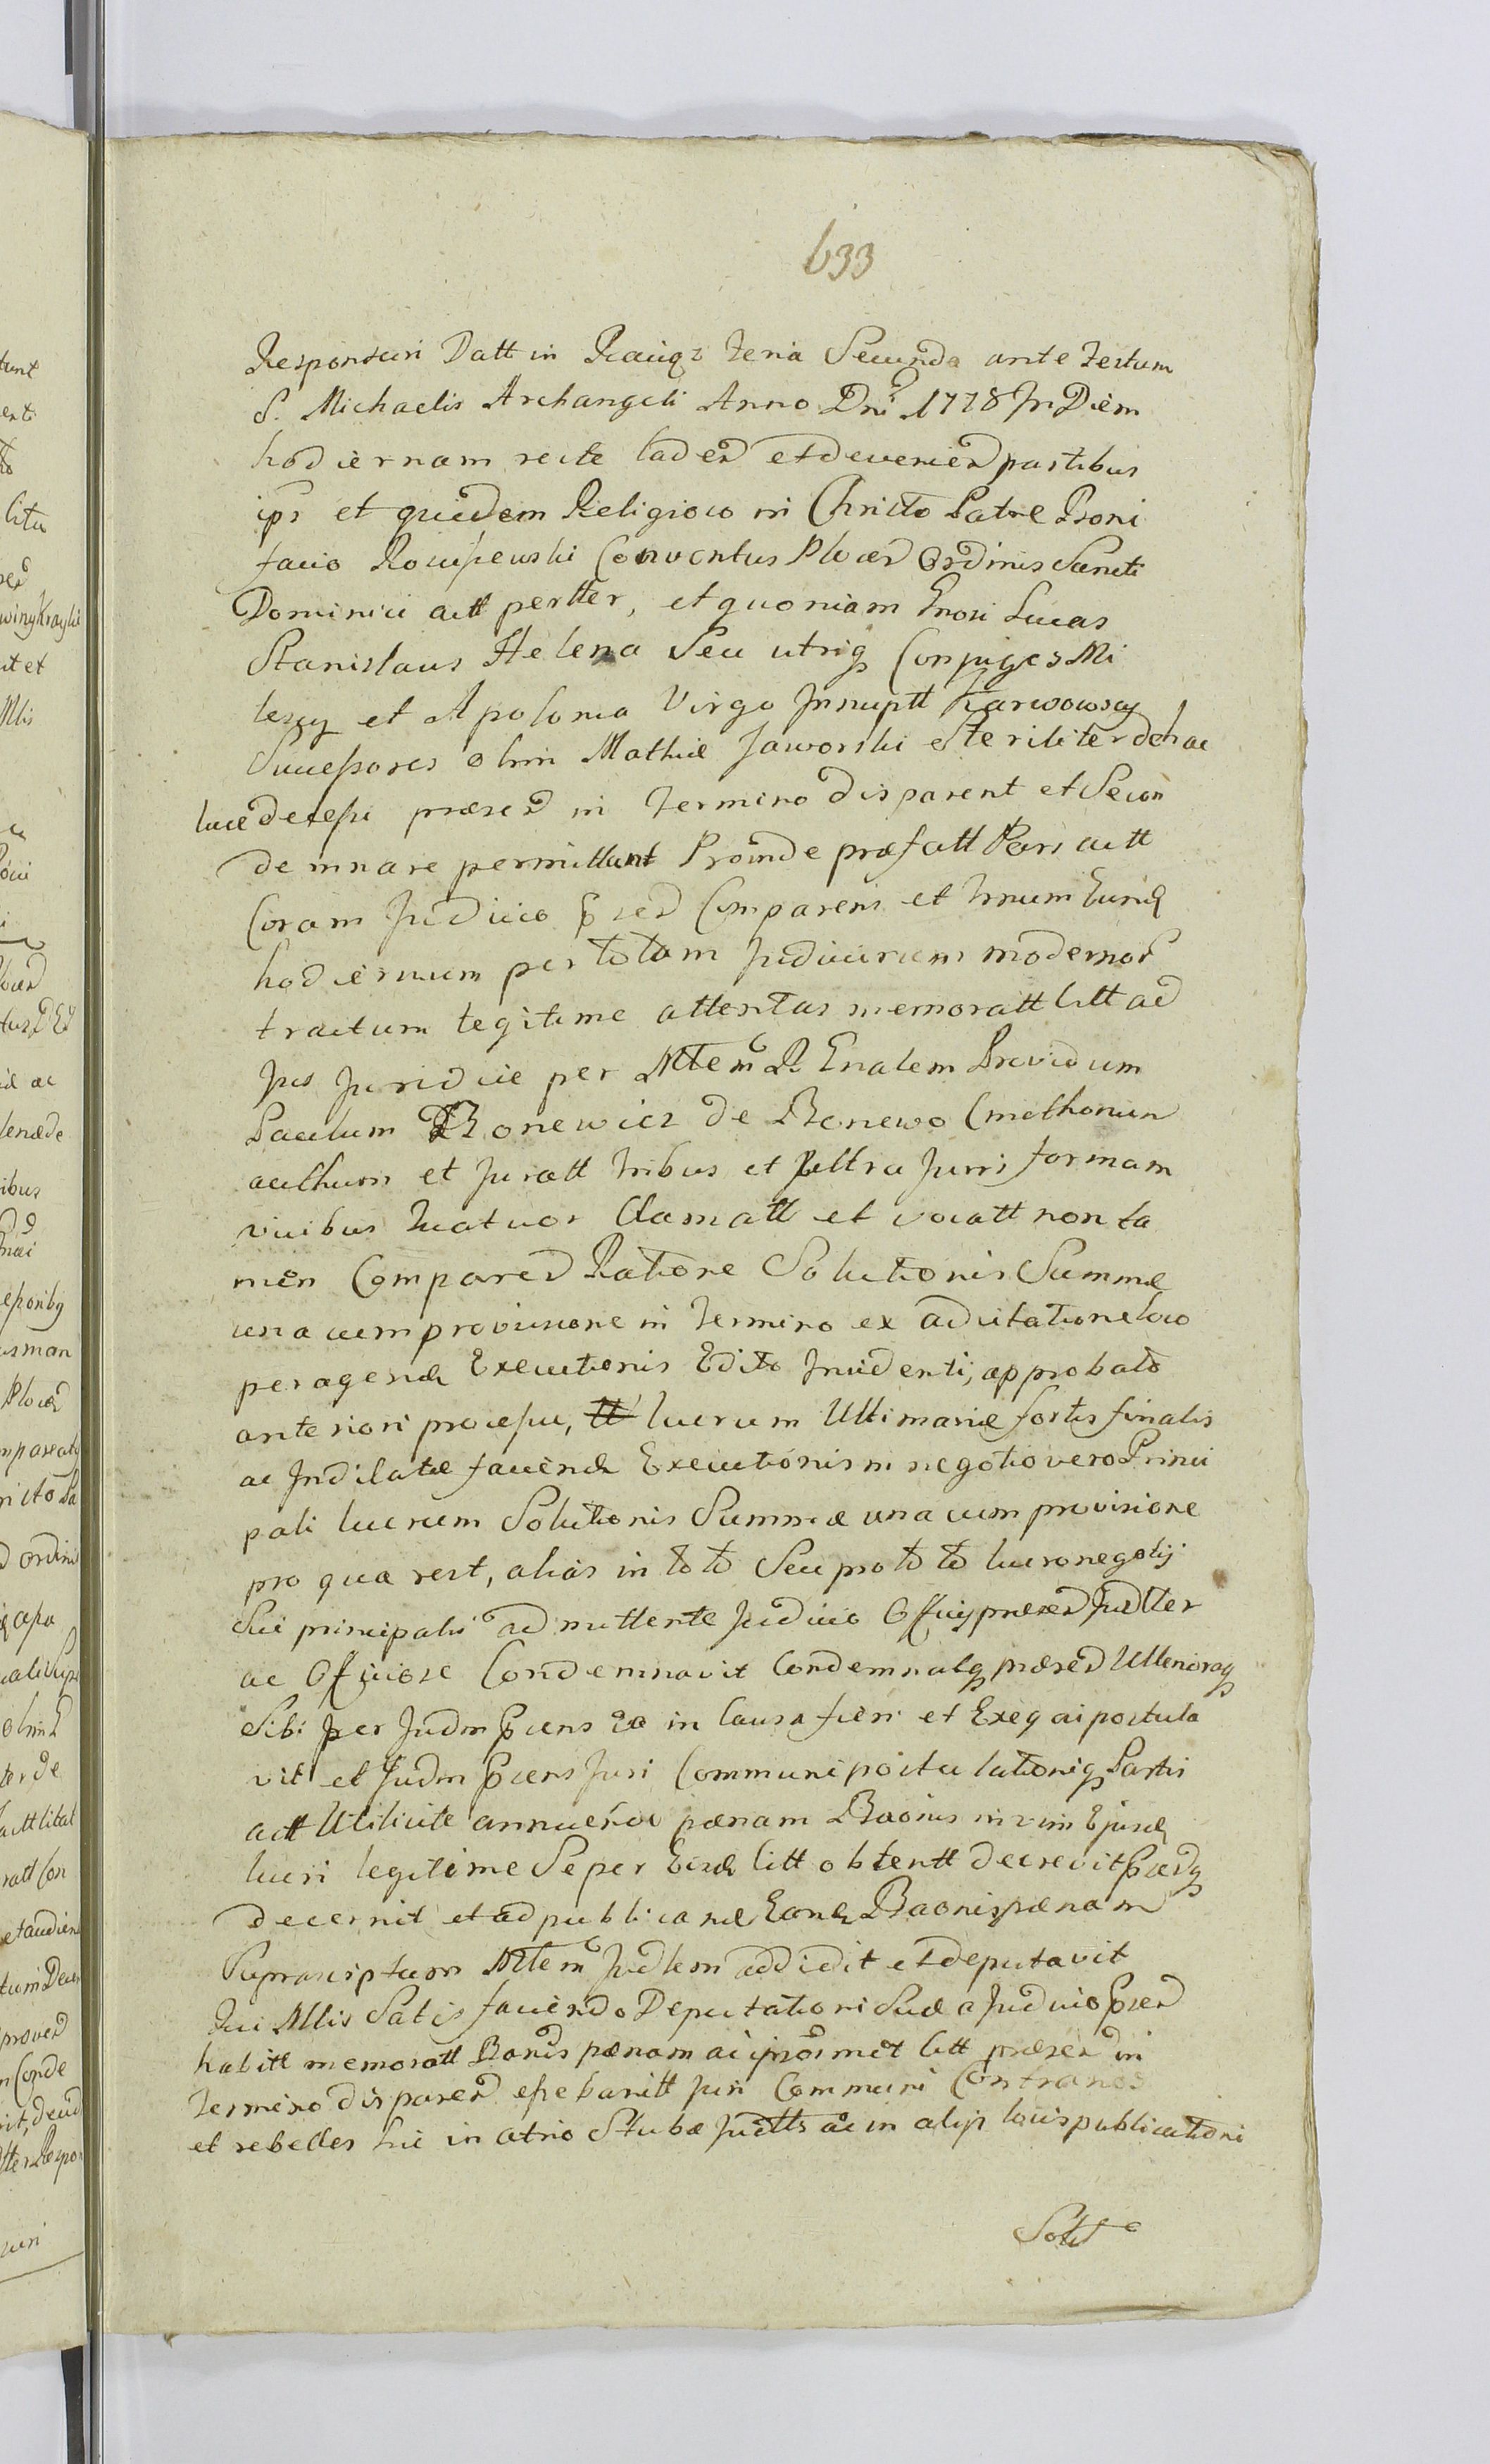 633
Responsuri Datt in Raciąż Feria Secunda ante Festum
S. Michaelis Archangeli Anno Dni 1778 In Diem
hodiernam recte caden et devenien partibus
ips et quidem Religioso in Christo Patre Boni
facio Conventus Plocen Ordinis Sancti
Dominici actt pertter, et quoniam Gnosi Lucas
Stanislaus Helena Seu utriq Conjuges Mi
lescy et Apolonia Virgo Innuptt Karwowscy
Successores olim Mathiæ Jaworski steriliter de hac
luce decessi præsen in Termino disparent et Secon
demnare permittunt Proinde præfatt Pars actt
Coram Judicio Comparens et Tnum Eund
hodiernum per totum Judiciorum modernor
tractum legitime attentas memoratt Citt ad
Jus Juridice per Mtem R Gnalem Providum
Paulum Bonewicz de Bonewo Cmethonum
aucthum et Juratt tribus et ultra Juris formam
vicibus Quatuor Clamatt et vocatt non ta
men Comparen Ratione Solutionis Summæ
una cum provisione in Termino ex adcitatione loco
peragend Executionis Edito Incidenti, approbato
anteriori processu, lucrum Ultimariæ fortis finalis
ac Indilatæ faciend Executionis in negotio vero Princi
pali lucrum Solutionis Summæ una cum provisione
pro qua rest, alias in toto Seu pro toto lucro negotij
Sui principalis admittente Judicio Officij præsen Judtter
ac Officiose Condemnavit Condemnatq præsen Ulteriorag
Sibi per Judm in Causa fieri et Exequi postula
vit et Judm Juri Communi postulationiq Partis
actt Utilicite annuendo pænam Baonis in vim Ejusd
lucri legitime Se per Eisd Citt obtentt decrevit
decernit et ad publicand Eand Baonis pænam
Suprascriptum Mtem Judlem addidit et deputavit
Qui Mtis Satis faciendo Deputationi Suæ a Judicio
habitt memoratt Baonis pænam ac ipsosmet Citt præsen in
Termino disparen esse banitt juri Communi Contrarios
et rebelles hic in atrio Stubæ Judtts ac in alijs locis publicationi
Solit